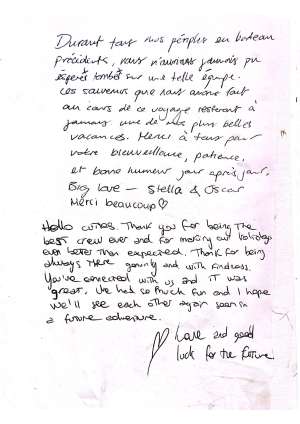 Durant tous nos périples en bateau
précédents, nous n'aurions jamais pu
espérer tomber sur une telle équipe.
Les souvenirs que nous avons fait
au cours de ce voyage resteront à
jamais une de nos plus belles
vacances. Merci à tous pour
votre bienveillance, patience,
et bonne humeur jour après jour.
Big love – Stella & Oscar
Merci beaucoup ♡
Hello cuties. Thank you for being the
best crew ever and for making our holidays
even better than expected. Thank for being
always there gently and with kindness.
You've connected with us and it was
great. We had so much fun and I hope
we'll see each other again soon in
a future adventure.
♡ Love and good
luck for the future